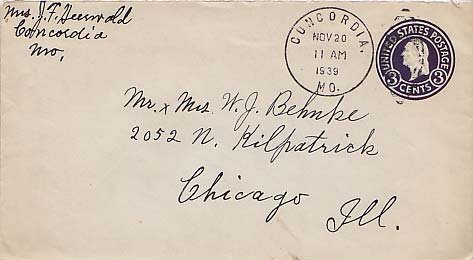 Mrs. J. F. Heerwald
Concordia
Mo,
CONCORDIA,
NOV 20
11 AM
1939
MO.
UNITED STATES POSTAGE
3 CENTS 3
Mr. x Mrs. W. J. Behnke
2052 N. Kilpatrick
Chicago
Ill.